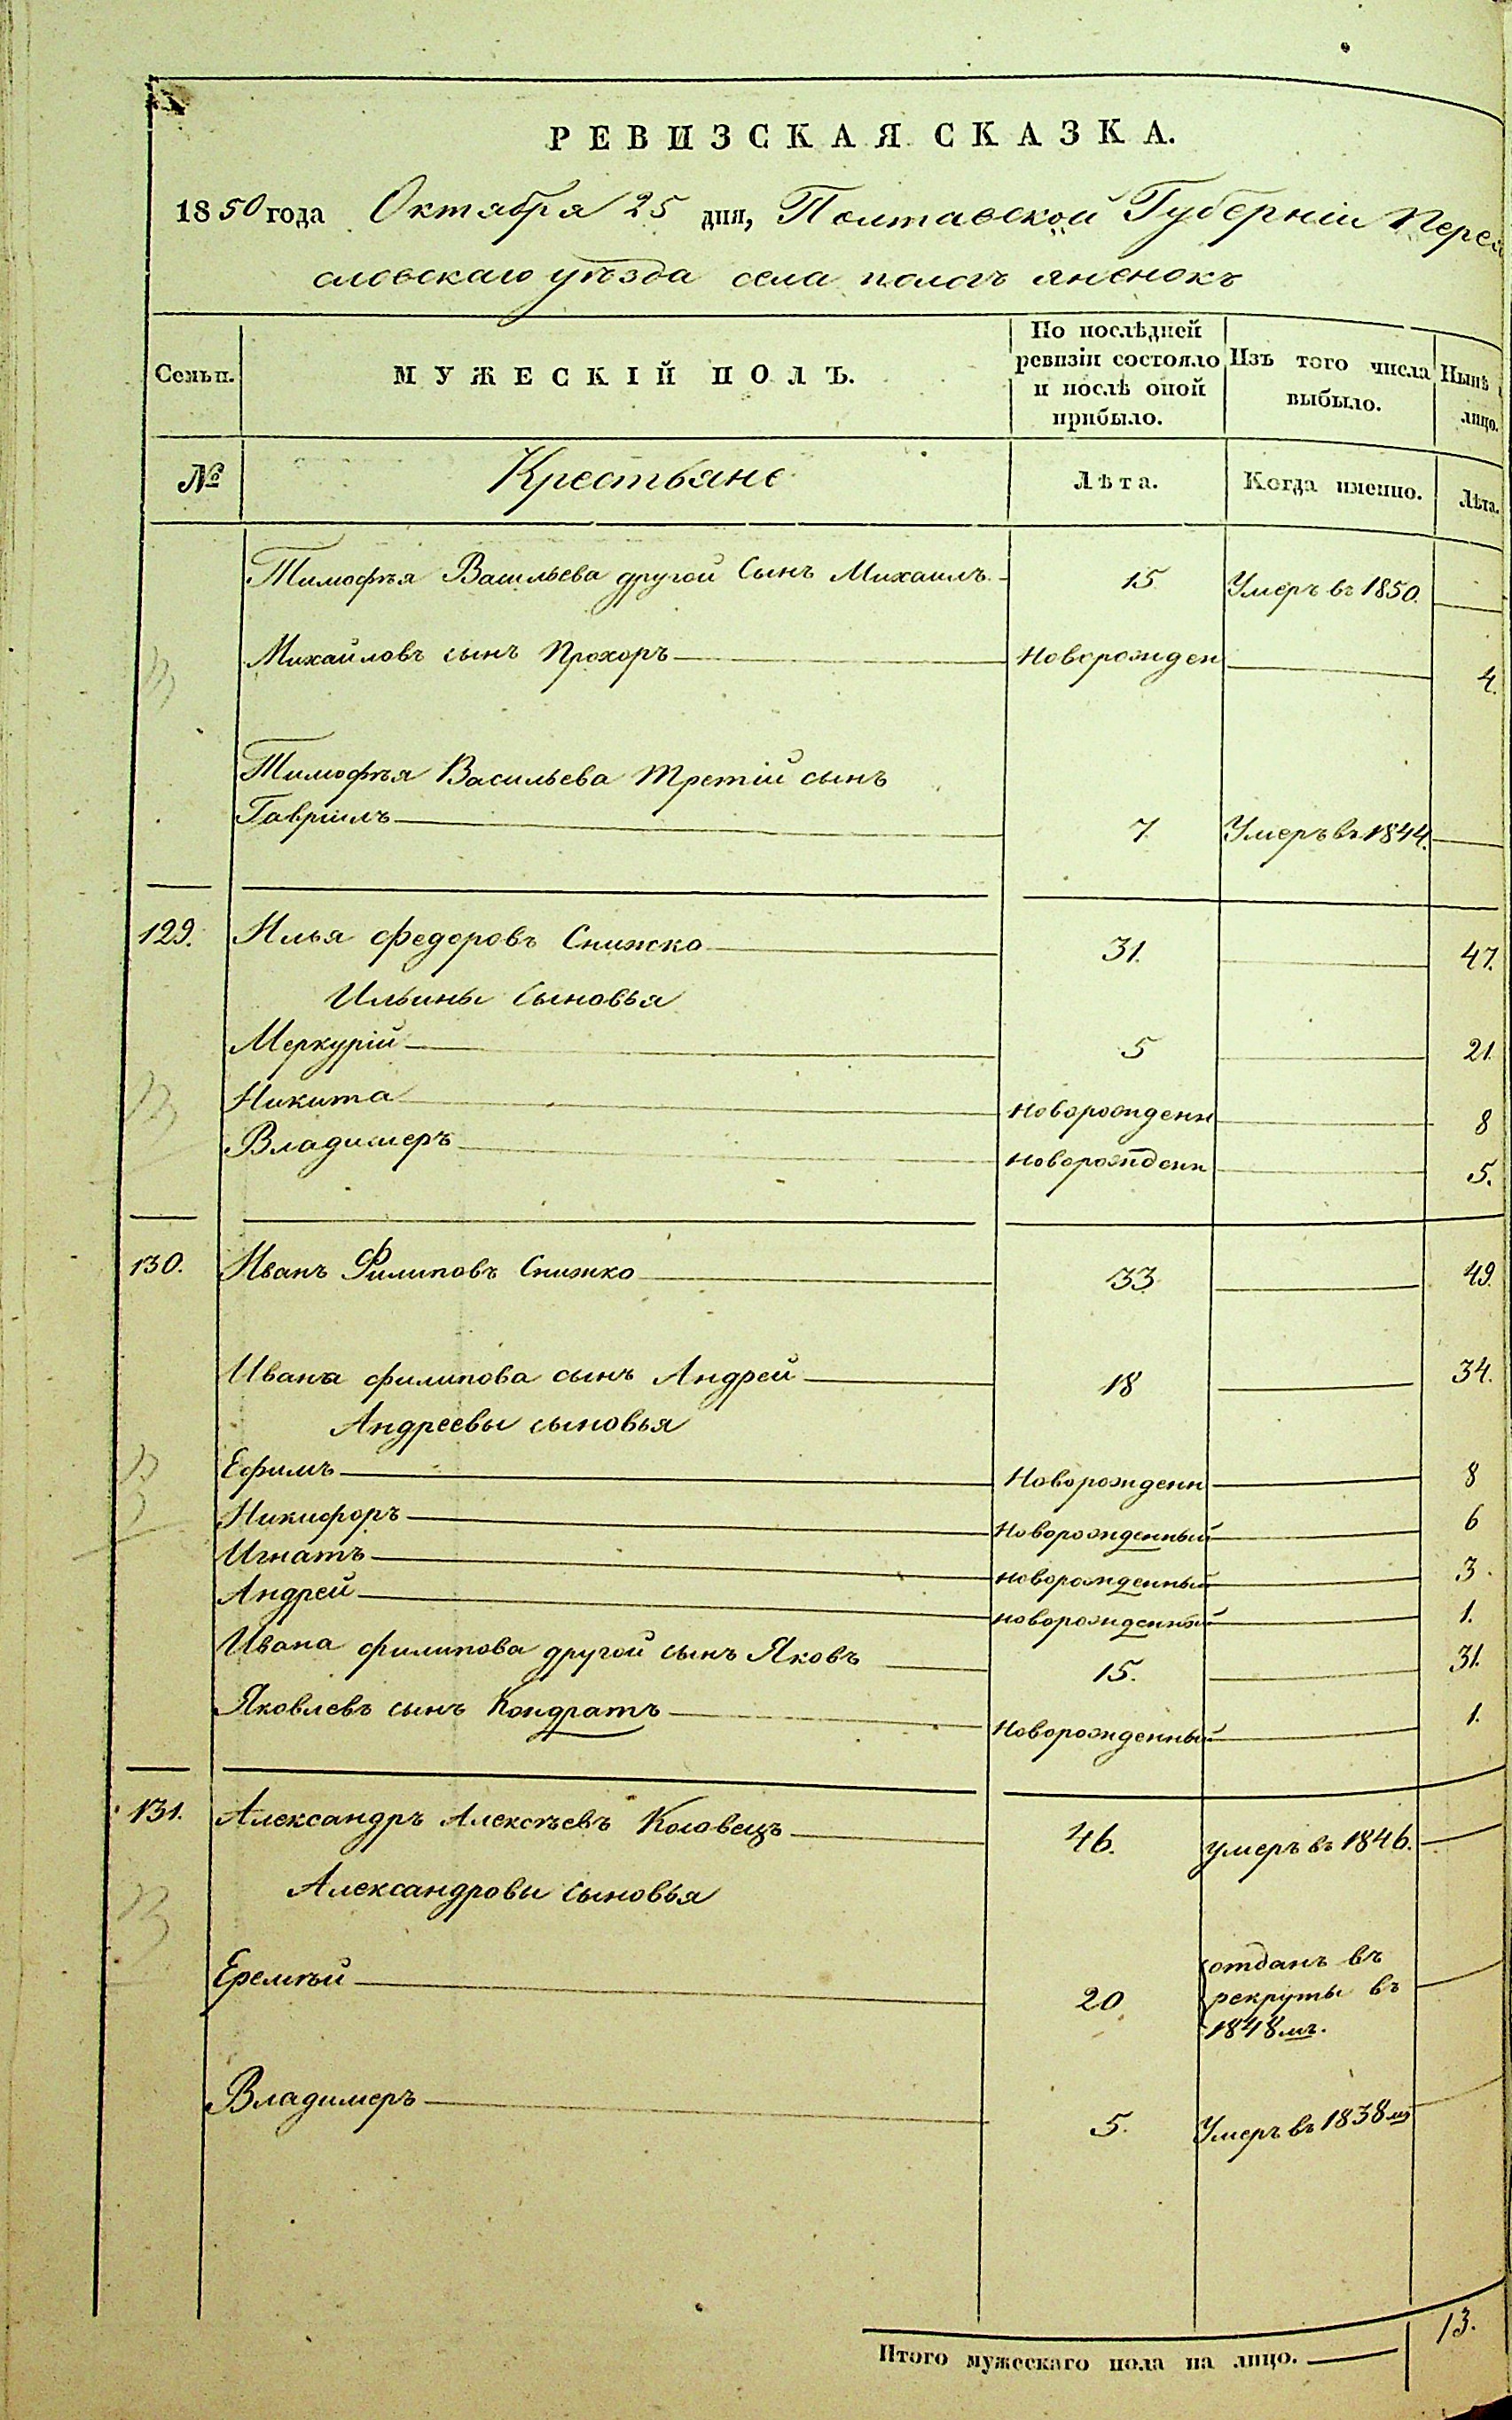 РЕВИЗСКАЯ СКАЗКА.
1850 года Октября 25 дня, Полтавской Губерніи Перея
словскаго уѣзда села пологъ яненокъ
Семьи. МУЖЕСКІЙ ПОЛЪ. По послѣдней ревизіи состояло и послѣ оной прибыло. Изъ того числа выбыло. Нынѣ лицо.
№ Крестьяне Лѣта. Когда именно. Лѣта.
Тимофѣя Васильева другой Сынъ Михаилъ 15 Умеръ въ 1850.
Михайловъ сынъ Прохоръ Новорожден 4.
Тимофѣя Васильева Третій сынъ
Гавріилъ 7 Умеръ въ 1844.
129. Илья Федоровъ Снижко 31. 47.
Ильины Сыновья
Меркурій 5 21
Никита новорожденн 8
Владимеръ новорожденн 5.
130. Иванъ Филиповъ Снижко 33 49.
Ивана филипова сынъ Андрей 18 34.
Андреевы сыновья
Ефимъ Новорожденн 8
Никифоръ Новорожденный 6
Игнатъ новорожденный 3.
Андрей новорожденный 1.
Ивана филипова другой сынъ Яковъ 15. 31.
Яковлевъ сынъ Кондратъ Новорожденный 1.
131. Александръ Алексѣевъ 46. умеръ въ 1846.
Александровы Сыновья
Еремѣй 20 отданъ въ
рекруты въ
1848мъ.
Владимеръ 5. Умеръ въ 1838мъ
Итого мужескаго пола на лицо. 13.